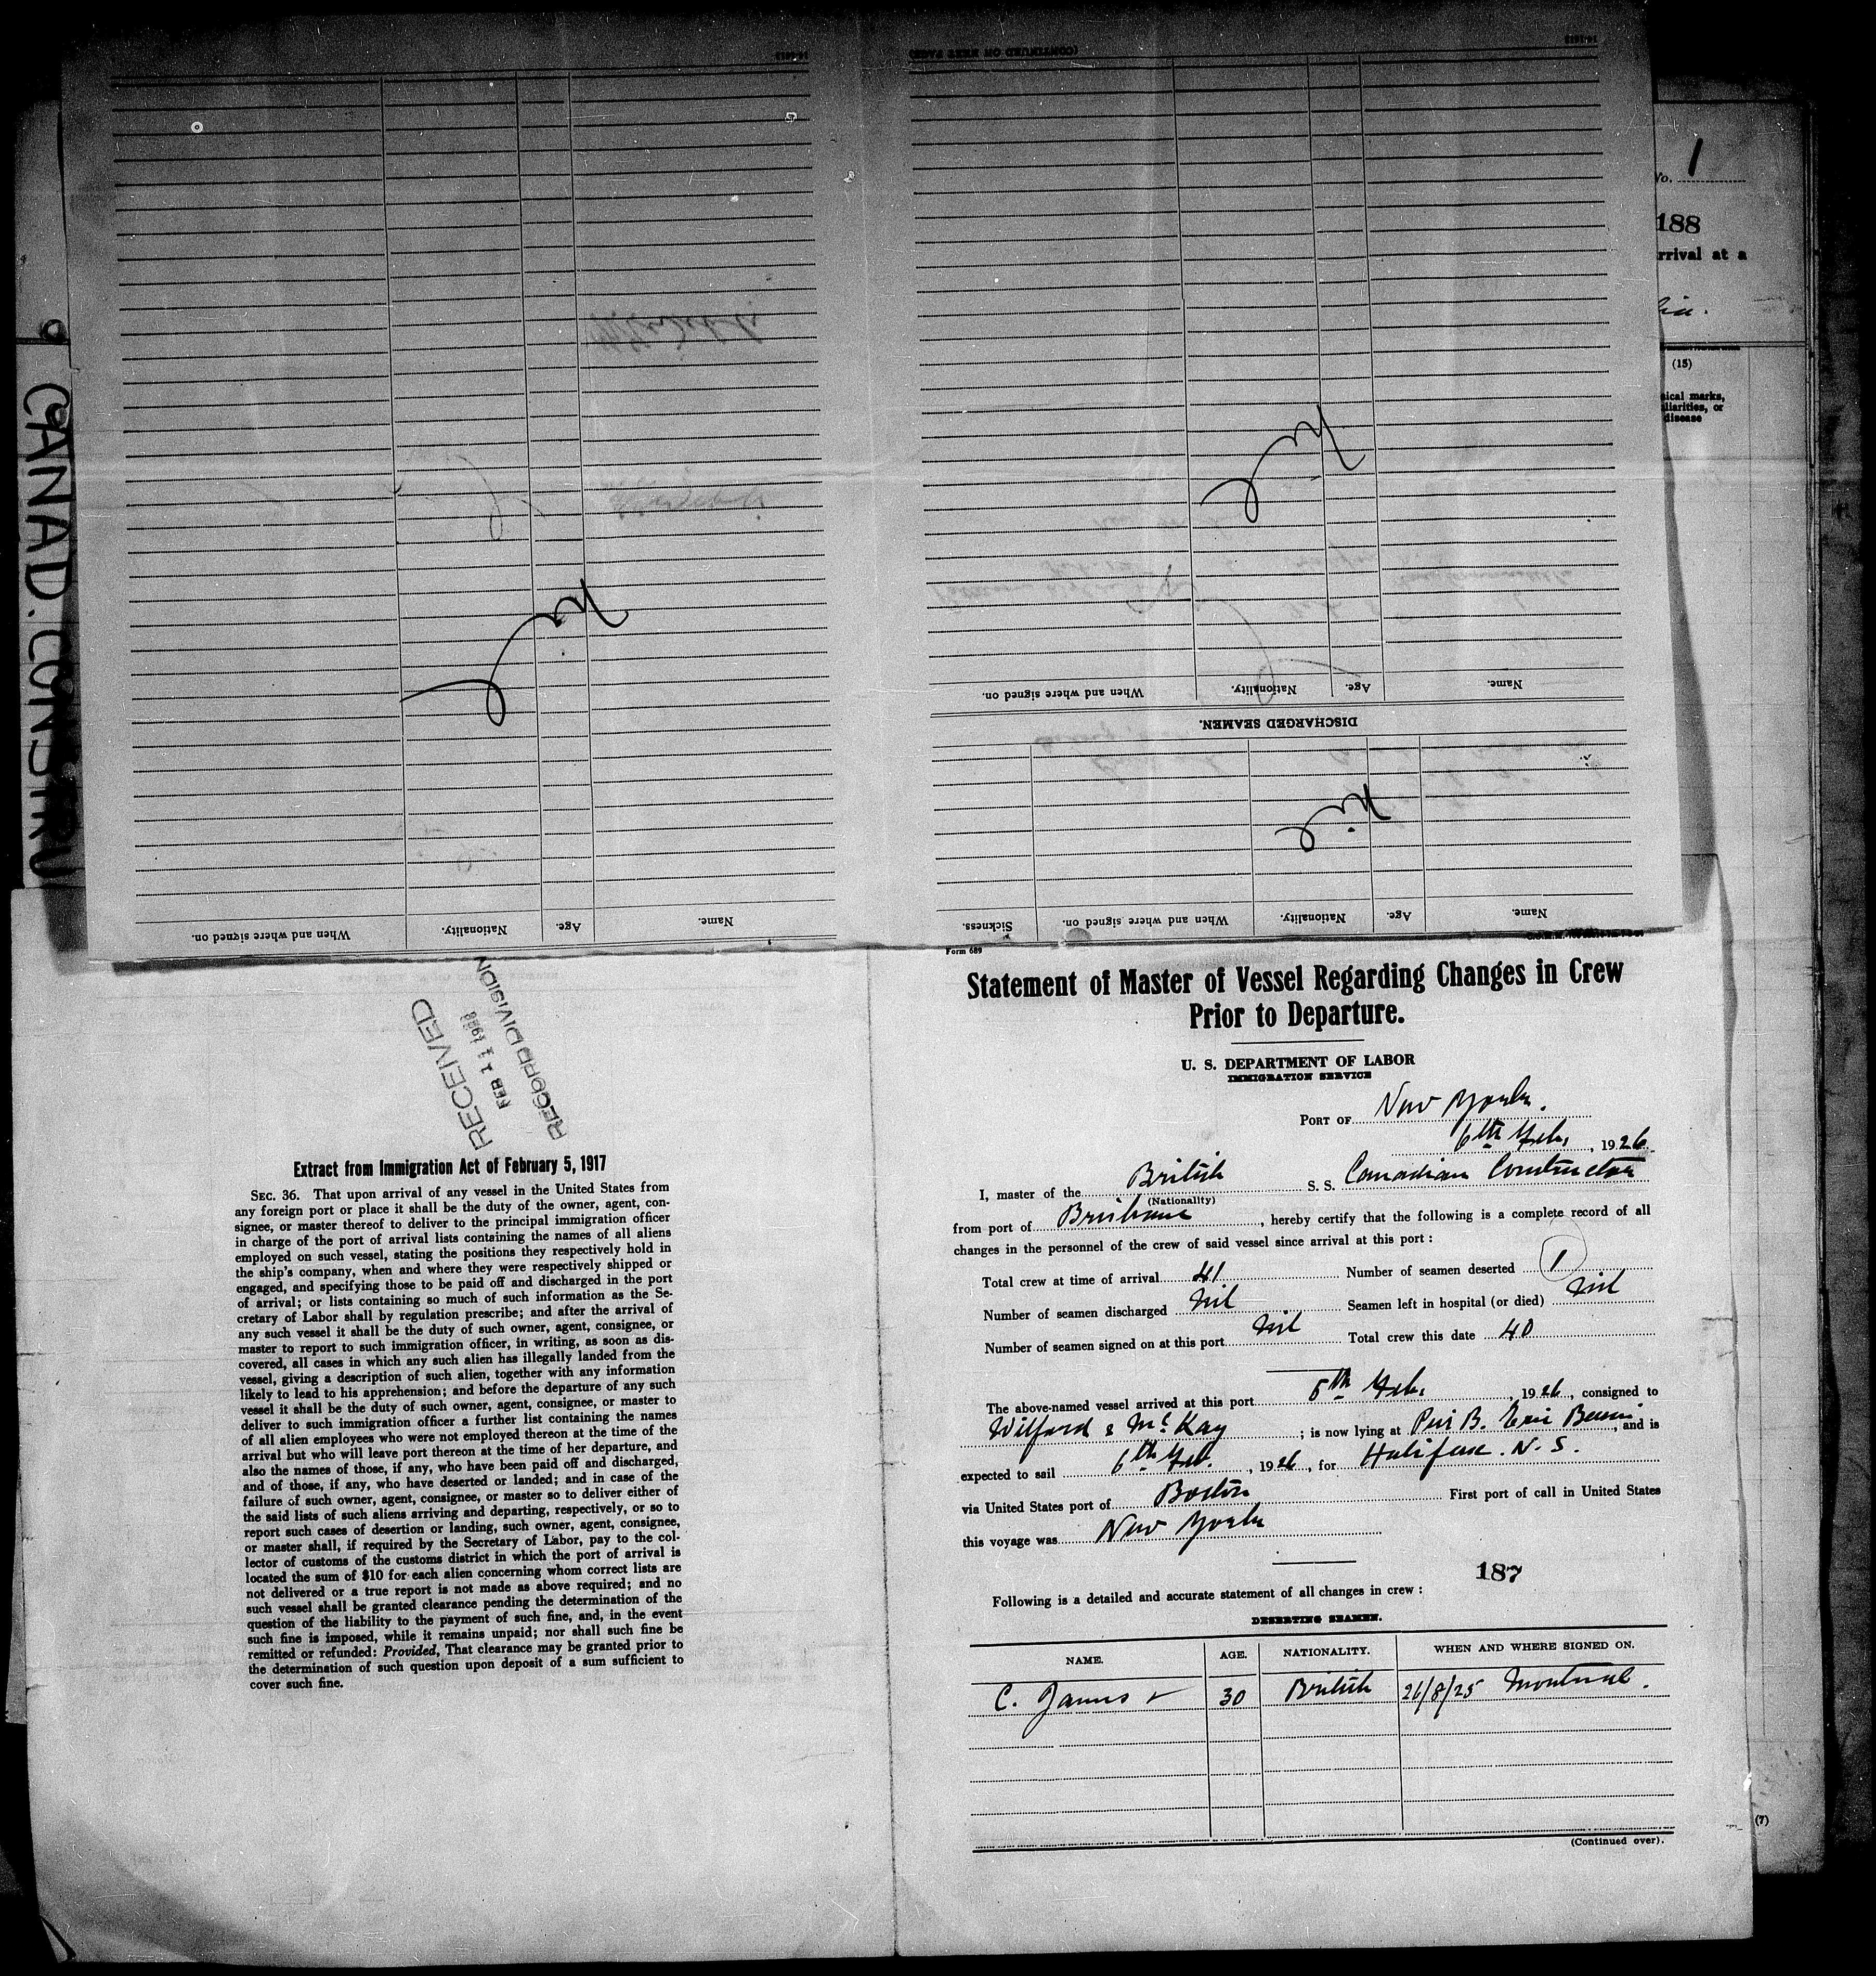 (CONTINUED ON NEXT PAGE)
Nil
When and where signed on.
Nationality.
Age.
Name.
DISCHARGED SEAMEN.
Nil
Sickness.
When and where signed on.
Nationality.
Age.
Name.
Nil
When and where signed on.
Nationality.
Age.
Name.
CANAD. CONSTRU
No. 1
188
rrival at a
(15)
sical marks,
uliarities, or
disease
RECEIVED
FEB 11 1926
RECORD DIVISION
Extract from Immigration Act of February 5, 1917
SEC. 36. That upon arrival of any vessel in the United States from
any foreign port or place it shall be the duty of the owner, agent, con-
signee, or master thereof to deliver to the principal immigration officer
in charge of the port of arrival lists containing the names of all aliens
employed on such vessel, stating the positions they respectively hold in
the ship's company, when and where they were respectively shipped or
engaged, and specifying those to be paid off and discharged in the port
of arrival; or lists containing so much of such information as the Se-
cretary of Labor shall by regulation prescribe; and after the arrival of
any such vessel it shall be the duty of such owner, agent, consignee, or
master to report to such immigration officer, in writing, as soon as dis-
covered, all cases in which any such alien has illegally landed from the
vessel, giving a description of such alien, together with any information
likely to lead to his apprehension; and before the departure of any such
vessel it shall be the duty of such owner, agent, consignee, or master to
deliver to such immigration officer a further list containing the names
of all alien employees who were not employed thereon at the time of the
arrival but who will leave port thereon at the time of her departure, and
also the names of those, if any, who have been paid off and discharged,
and of those, if any, who have deserted or landed; and in case of the
failure of such owner, agent, consignee, or master so to deliver either of
the said lists of such aliens arriving and departing, respectively, or so to
report such cases of desertion or landing, such owner, agent, consignee,
or master shall, if required by the Secretary of Labor, pay to the col-
lector of customs of the customs district in which the port of arrival is
located the sum of $10 for each alien concerning whom correct lists are
not delivered or a true report is not made as above required; and no
such vessel shall be granted clearance pending the determination of the
question of the liability to the payment of such fine, and, in the event
such fine is imposed, while it remains unpaid; nor shall such fine be
remitted or refunded: Provided, That clearance may be granted prior to
the determination of such question upon deposit of a sum sufficient to
cover such fine.
Form 689
Statement of Master of Vessel Regarding Changes in Crew
Prior to Departure.
U. S. DEPARTMENT OF LABOR
IMMIGRATION SERVICE
PORT OF New York.
6th Feb, 1926.
I, master of the British S. S. Canadian Constructor
(Nationality)
from port of Brisbane, hereby certify that the following is a complete record of all
changes in the personnel of the crew of said vessel since arrival at this port :
Total crew at time of arrival 41 Number of seamen deserted 1
Number of seamen discharged Nil Seamen left in hospital (or died) Nil
Number of seamen signed on at this port Nil Total crew this date 40
The above-named vessel arrived at this port 5th Feb. , 1926, consigned to
Wilford & McKay ; is now lying at Pier B. Erie Basin, and is
expected to sail 6th Feb. , 1926, for Halifax. N. S.
via United States port of Boston First port of call in United States
this voyage was New York
187
Following is a detailed and accurate statement of all changes in crew :
DESERTING SEAMEN.
NAME. AGE. NATIONALITY. WHEN AND WHERE SIGNED ON.
C. James 30 British 26/8/25 Montreal.
(Continued over).
(7)